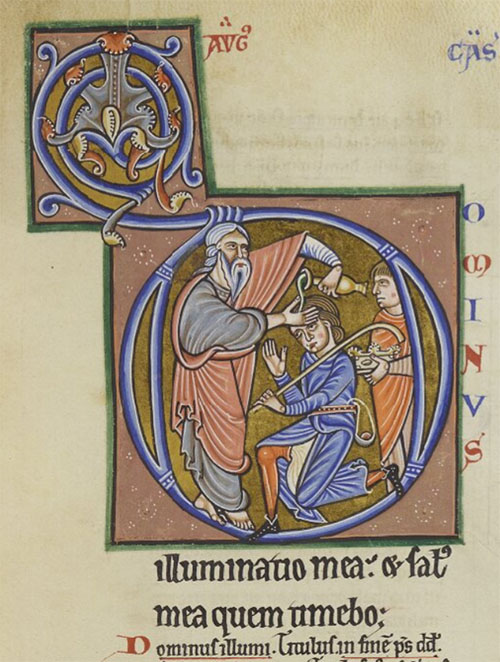 AVGꝰ
CAS
DOMINVS
illuminatio mea: & salꝰ
mea quem timebo;
Dominus illumi. Titulus. in finē p̄s dd̄.